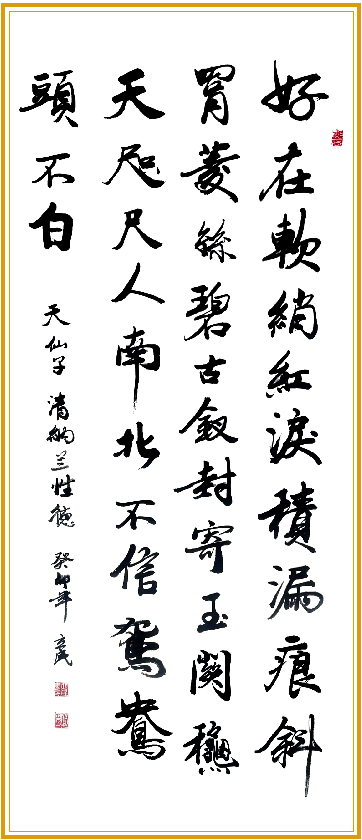 好在軟綃紅淚積漏痕斜
罥菱絲碧古釵封寄玉關龝
天咫尺人南北不信鴛鴦
頭不白
天仙子 清納兰性德 癸卯年